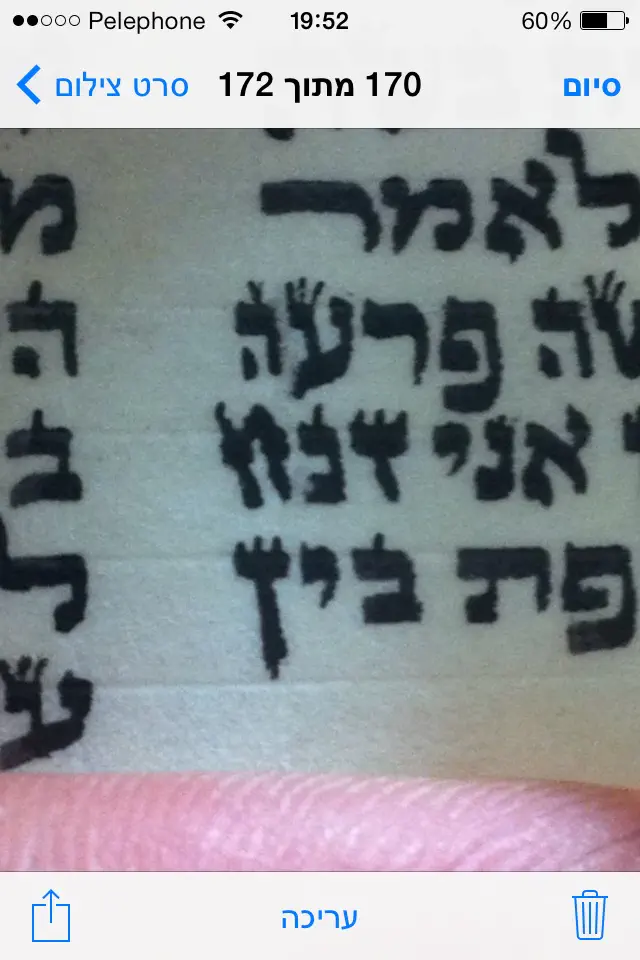 Pelephone 19:52 60%
סרט צילום 170 מתוך 172 סיום
לאמר
שה פרעה
אני זבח
פת בין
מ
ה
ב
ל
ע
עריכה